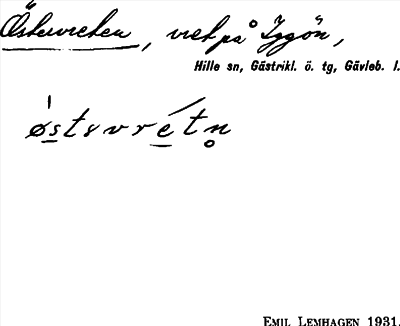 Östervreten, vret på Iggön,
Hille sn, Gästrikl. ö. tg, Gävleb. l.
østɜvrétn̥
EMIL LEMHAGEN 1931.